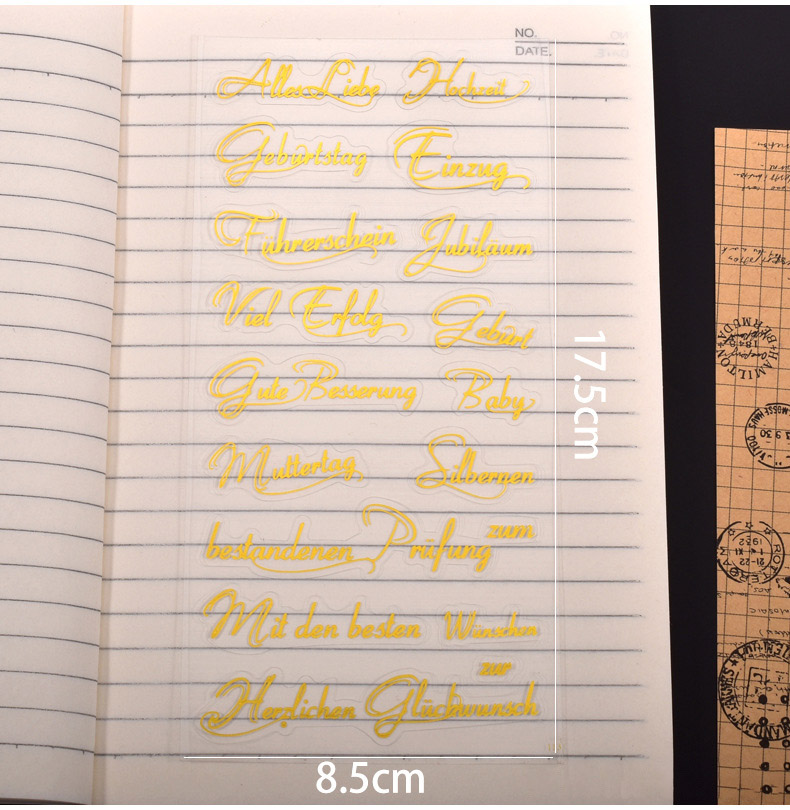 NO.
DATE.
Alles Liebe Hochzeit
Geburtstag Einzug
Führerschein Jubiläum
Viel Erfolg Geburt
Gute Besserung Baby
Muttertag Silbernen
zum
bestandenen Prüfung
Mit den besten Wünschen
zur
Herzlichen Glückwunsch
17.5cm
8.5cm
HAMILTON
BERMUDA